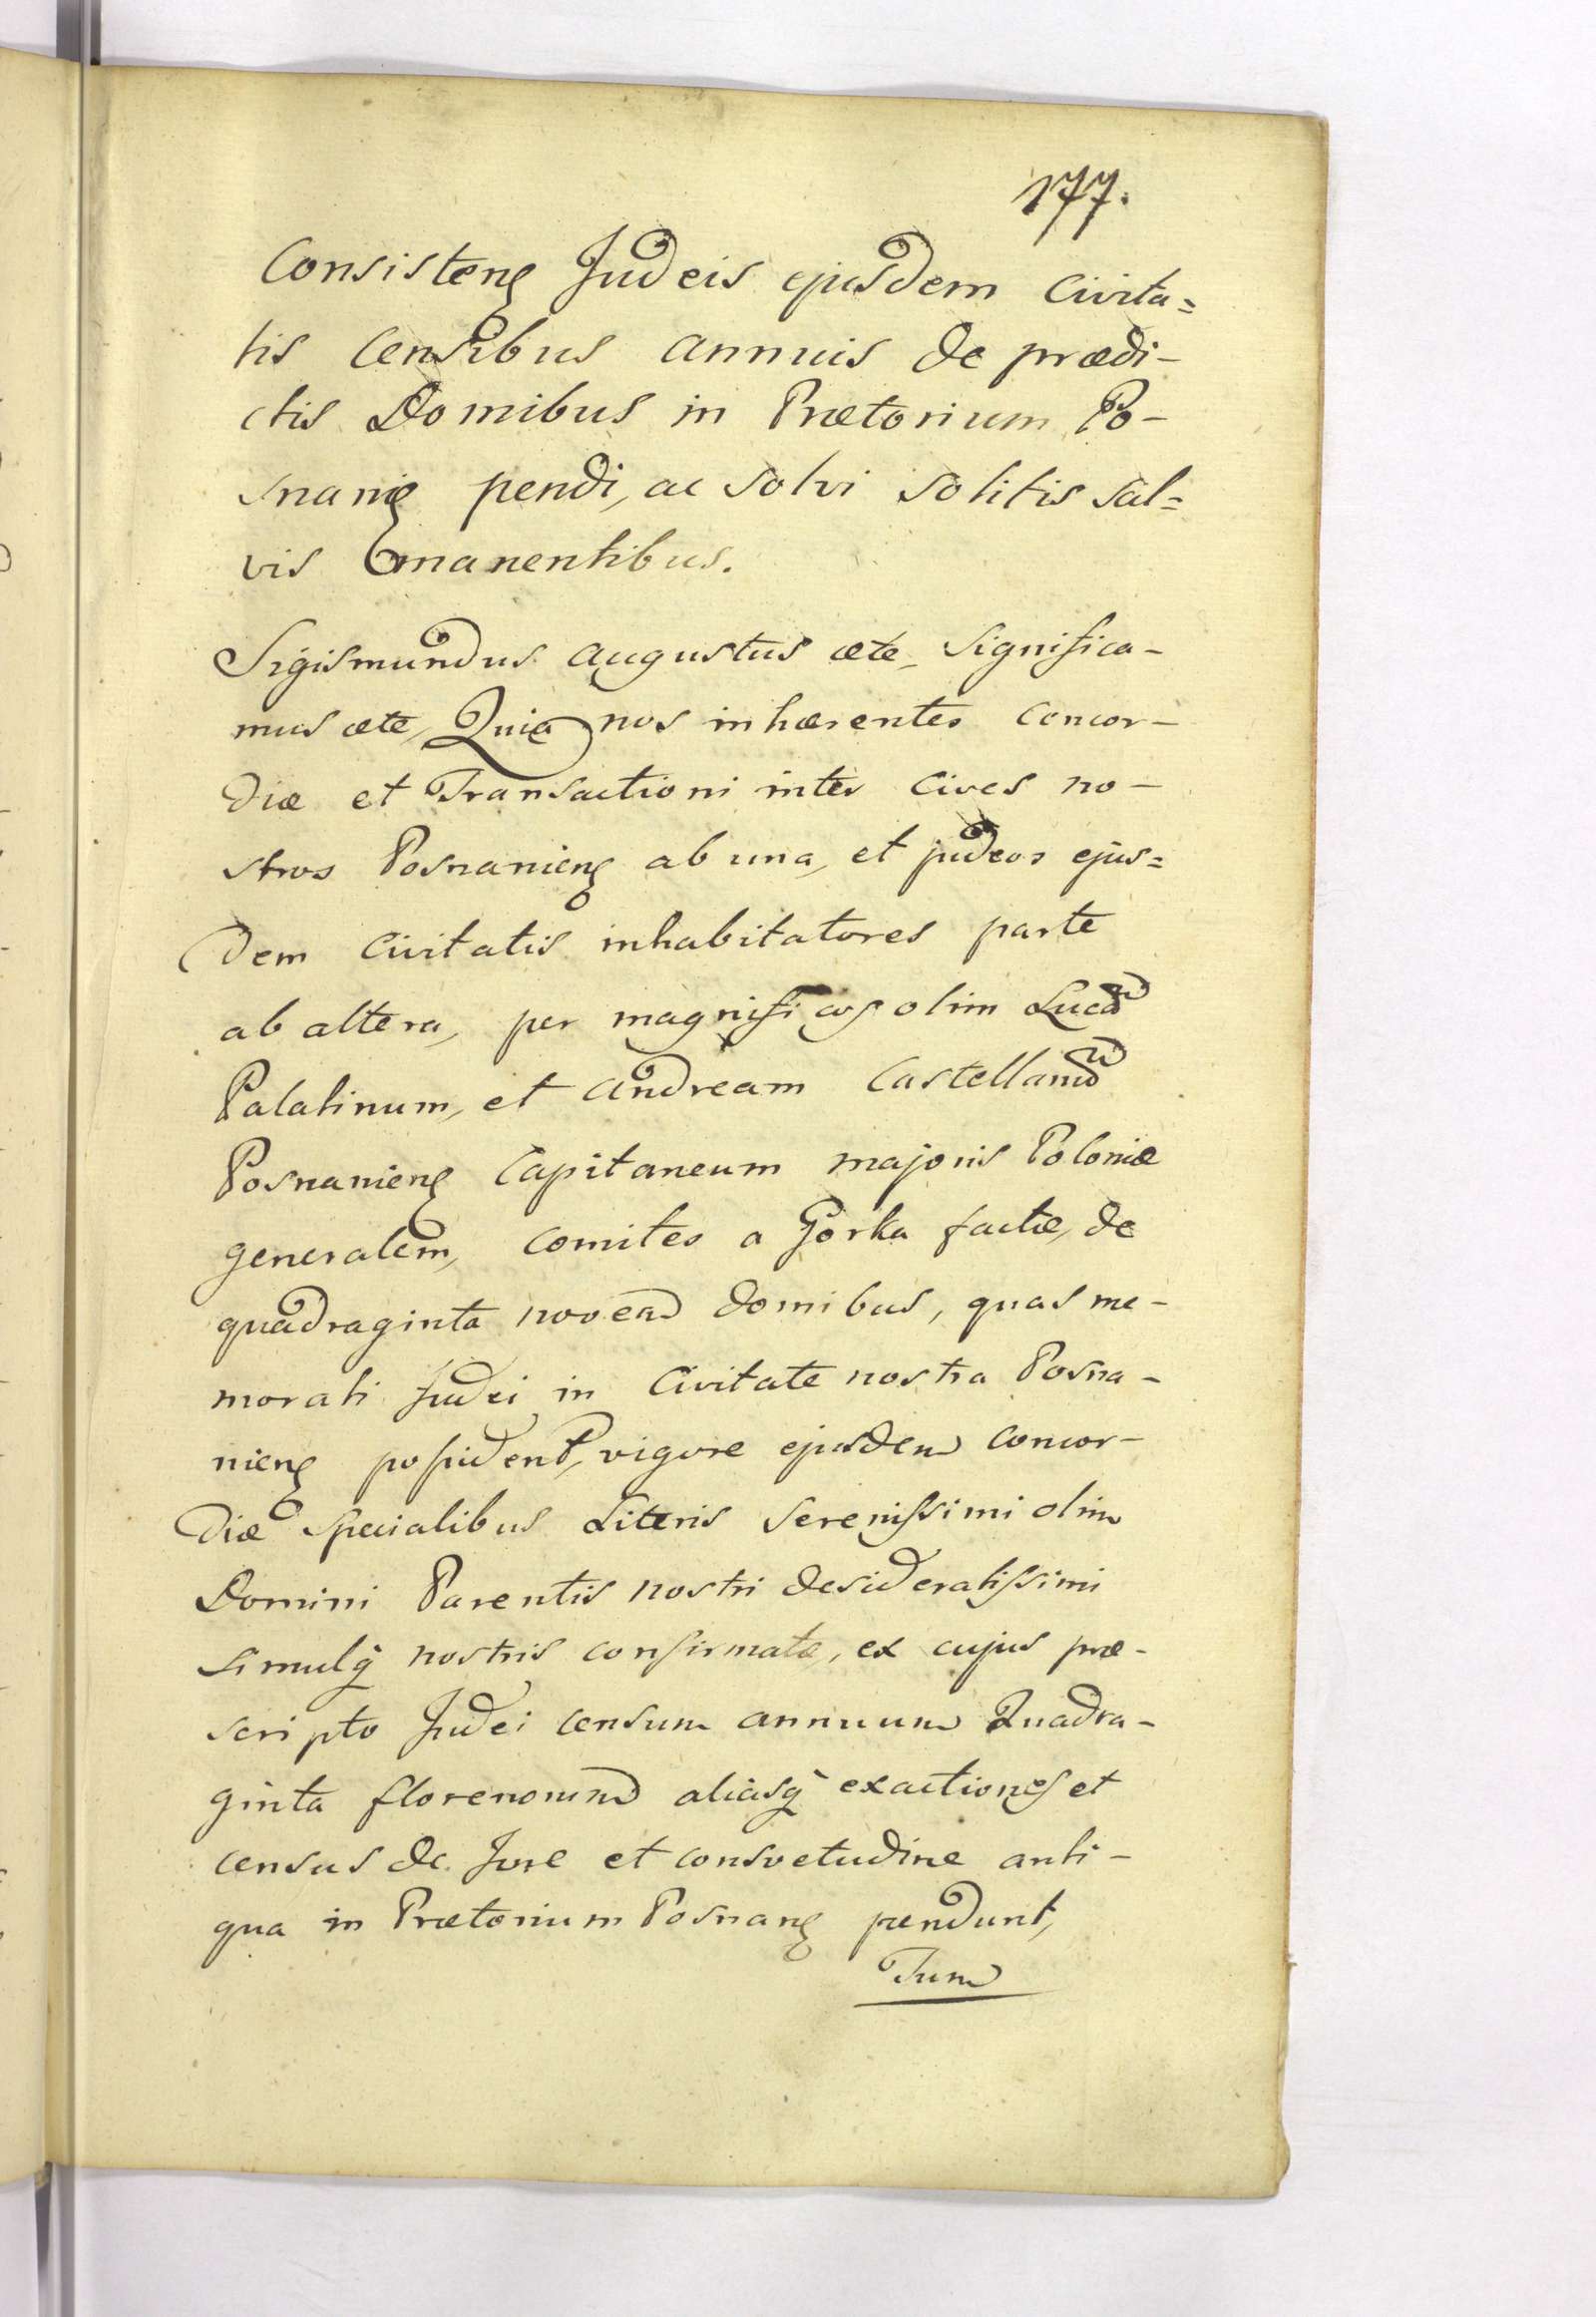 177.
Consistenꝭ Judeis ejusdem Civita=
tis Censibus annuis de prædi-
ctis Domibus in Prætorium Po-
snaniꝭ pendi, ac solvi solitis sal=
vis manentibus.
Sigismundus Augustus ætc, Significa-
mus ætc, Quia nos inhærentes Concor-
diæ et Transactioni inter Cives no-
stros Posnanienꝭ ab una, et judeos ejus=
dem Civitatis inhabitatores parte
ab altera, per magnificos olim Lucam
Palatinum, et Andream Castellanum
Posnanienꝭ Capitaneum majoris Poloniæ
generalem, Comites a Gorka factæ, de
quadraginta novem domibus, quas me-
morati Judei in Civitate nostra Posna-
nienꝭ possident, vigore ejusdem Concor-
diæ specialibus Literis Serenissimi olim
Domini Parentis nostri desideratissimi
simulq̃ nostris confirmatæ, ex cujus præ-
scripto Judei Censum annuum Quadra-
ginta florenorum aliasq̃ exactiones et
Census de Jure et consvetudine anti-
qua in Prætorium Posnanꝭ pendunt,
Tum